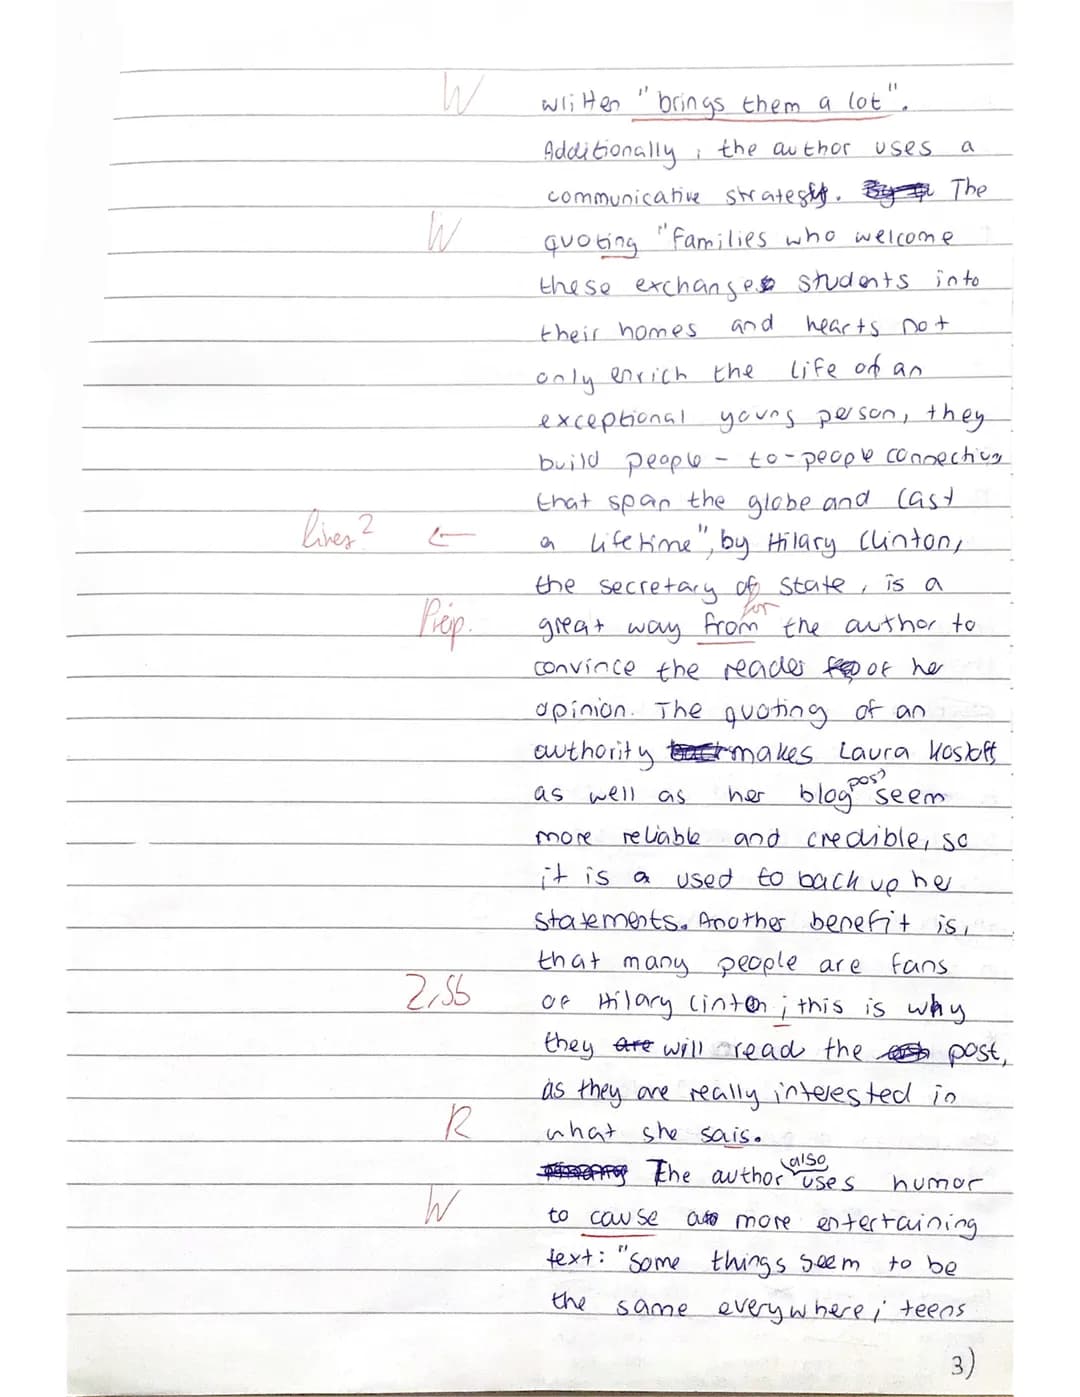 W written "brings them a lot".
Additionally, the author uses a
communicative strategy. The
W quoting "families who welcome
these exchange students into
their homes and hearts not
only enrich the life of an
exceptional young person, they
build people-to-people connecting
that span the globe and last
lines? ← a lifetime", by Hilary Clinton,
the secretary of state, is a
for
Präp. great way from the author to
convince the reader of her
opinion. The quoting of an
authority makes Laura Kosloff
post
as well as her blog seem
more reliable and credible, so
it is a used to back up her
statements. Another benefit is,
that many people are fans
Z,Sb of Hilary Clinton; this is why
they are will read the post,
as they are really interested in
R what she sais.
also
The author uses humor
W to cause a more entertaining
text: "Some things seem to be
the same everywhere; teens
3)